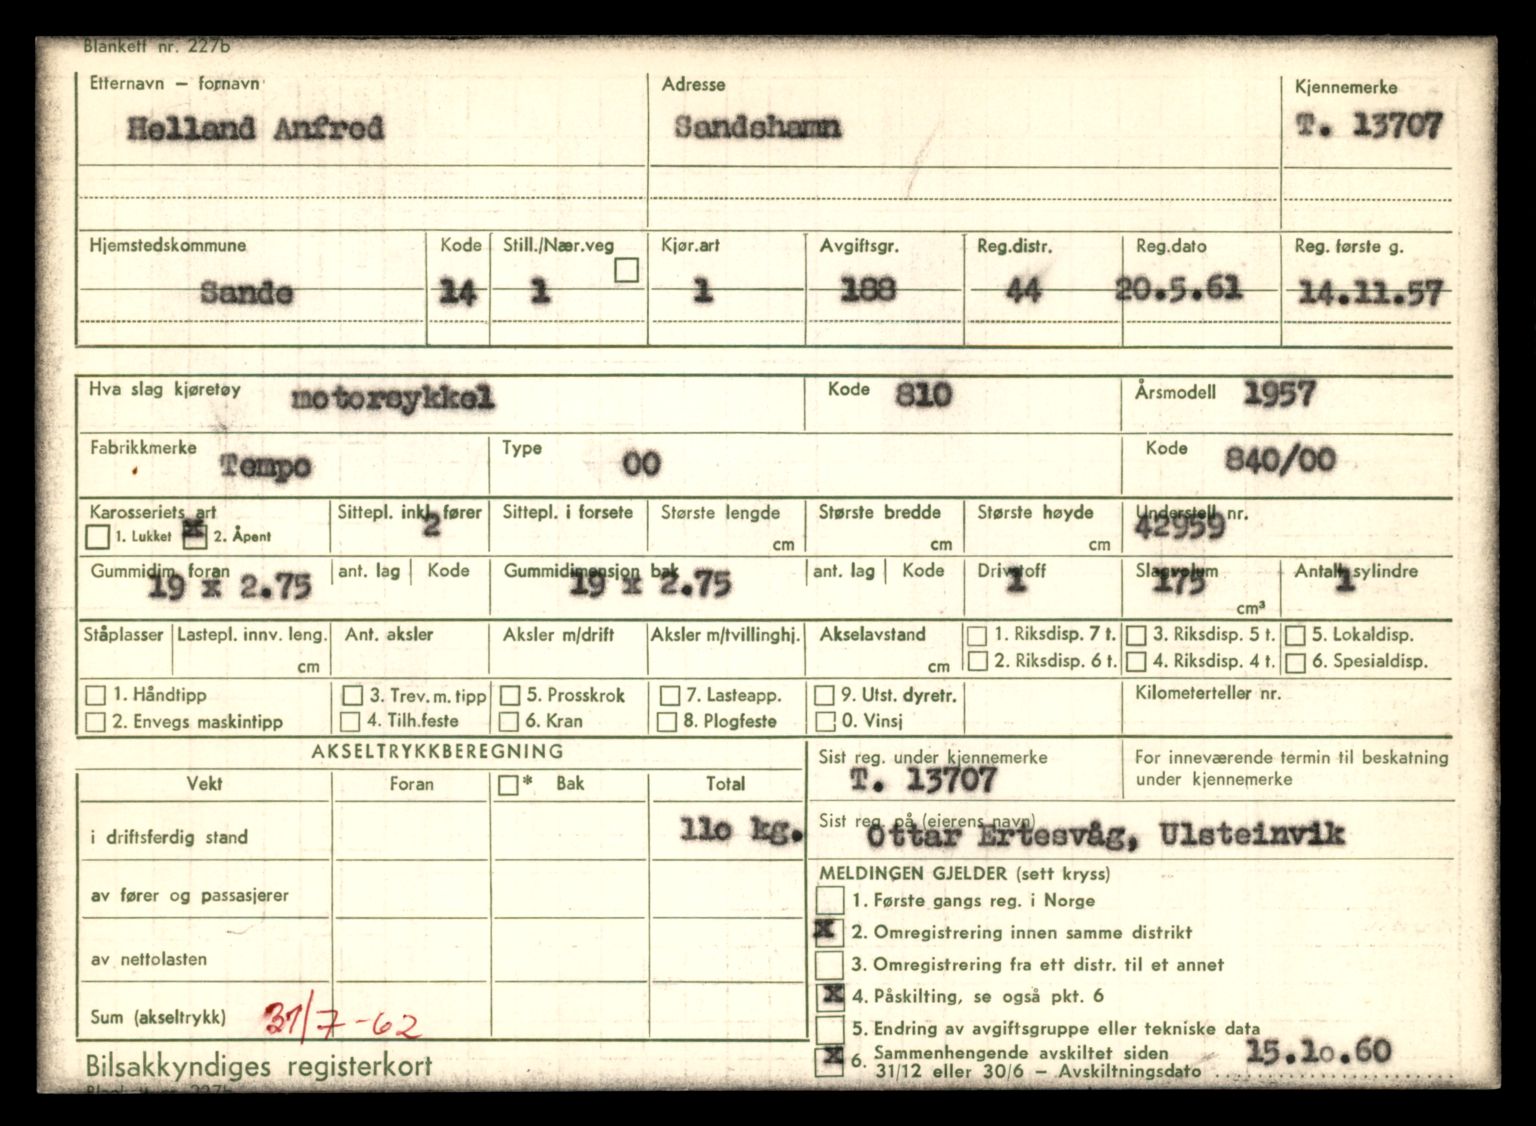 Blankett nr. 227b
Etternavn – fornavn
Adresse
Kjennemerke
Helland Anfred
Sandshamn
T. 13707
Hjemstedskommune
Kode
Still./Nær.veg
Kjør.art
Avgiftsgr.
Reg.distr.
Reg.dato
Reg. første g.
Sande
14
1
1
188
44
20.5.61
14.11.57
Hva slag kjøretøy motorsykkel
Kode 810
Årsmodell 1957
Fabrikkmerke Tempo
Type 00
Kode 840/00
Karosseriets art
Sittepl. inkl. fører
Sittepl. i forsete
Største lengde
Største bredde
Største høyde
Understell nr.
1. Lukket x 2. Åpent
2
cm
cm
cm
42959
Gummidim. foran
ant. lag
Kode
Gummidimensjon bak
ant. lag
Kode
Drivstoff
Slagvolum
Antall sylindre
19 x 2.75
19 x 2.75
1
175
cm³
1
Ståplasser
Lastepl. innv. leng.
Ant. aksler
Aksler m/drift
Aksler m/tvillinghj.
Akselavstand
1. Riksdisp. 7 t.
3. Riksdisp. 5 t.
5. Lokaldisp.
cm
cm
2. Riksdisp. 6 t.
4. Riksdisp. 4 t.
6. Spesialdisp.
1. Håndtipp
3. Trev. m. tipp
5. Prosskrok
7. Lasteapp.
9. Utst. dyretr.
Kilometerteller nr.
2. Envegs maskintipp
4. Tilh.feste
6. Kran
8. Plogfeste
0. Vinsj
AKSELTRYKKBEREGNING
Vekt
Foran
* Bak
Total
i driftsferdig stand
110 kg.
av fører og passasjerer
av nettolasten
Sum (akseltrykk)
31/7-62
Bilsakkyndiges registerkort
Sist reg. under kjennemerke
T. 13707
For inneværende termin til beskatning
under kjennemerke
Sist reg. på (eierens navn)
Ottar Ertesvåg, Ulsteinvik
MELDINGEN GJELDER (sett kryss)
1. Første gangs reg. i Norge
x 2. Omregistrering innen samme distrikt
3. Omregistrering fra ett distr. til et annet
x 4. Påskilting, se også pkt. 6
5. Endring av avgiftsgruppe eller tekniske data
x 6. Sammenhengende avskiltet siden
31/12 eller 30/6 – Avskiltningsdato
15.10.60
Blankett nr. 227b